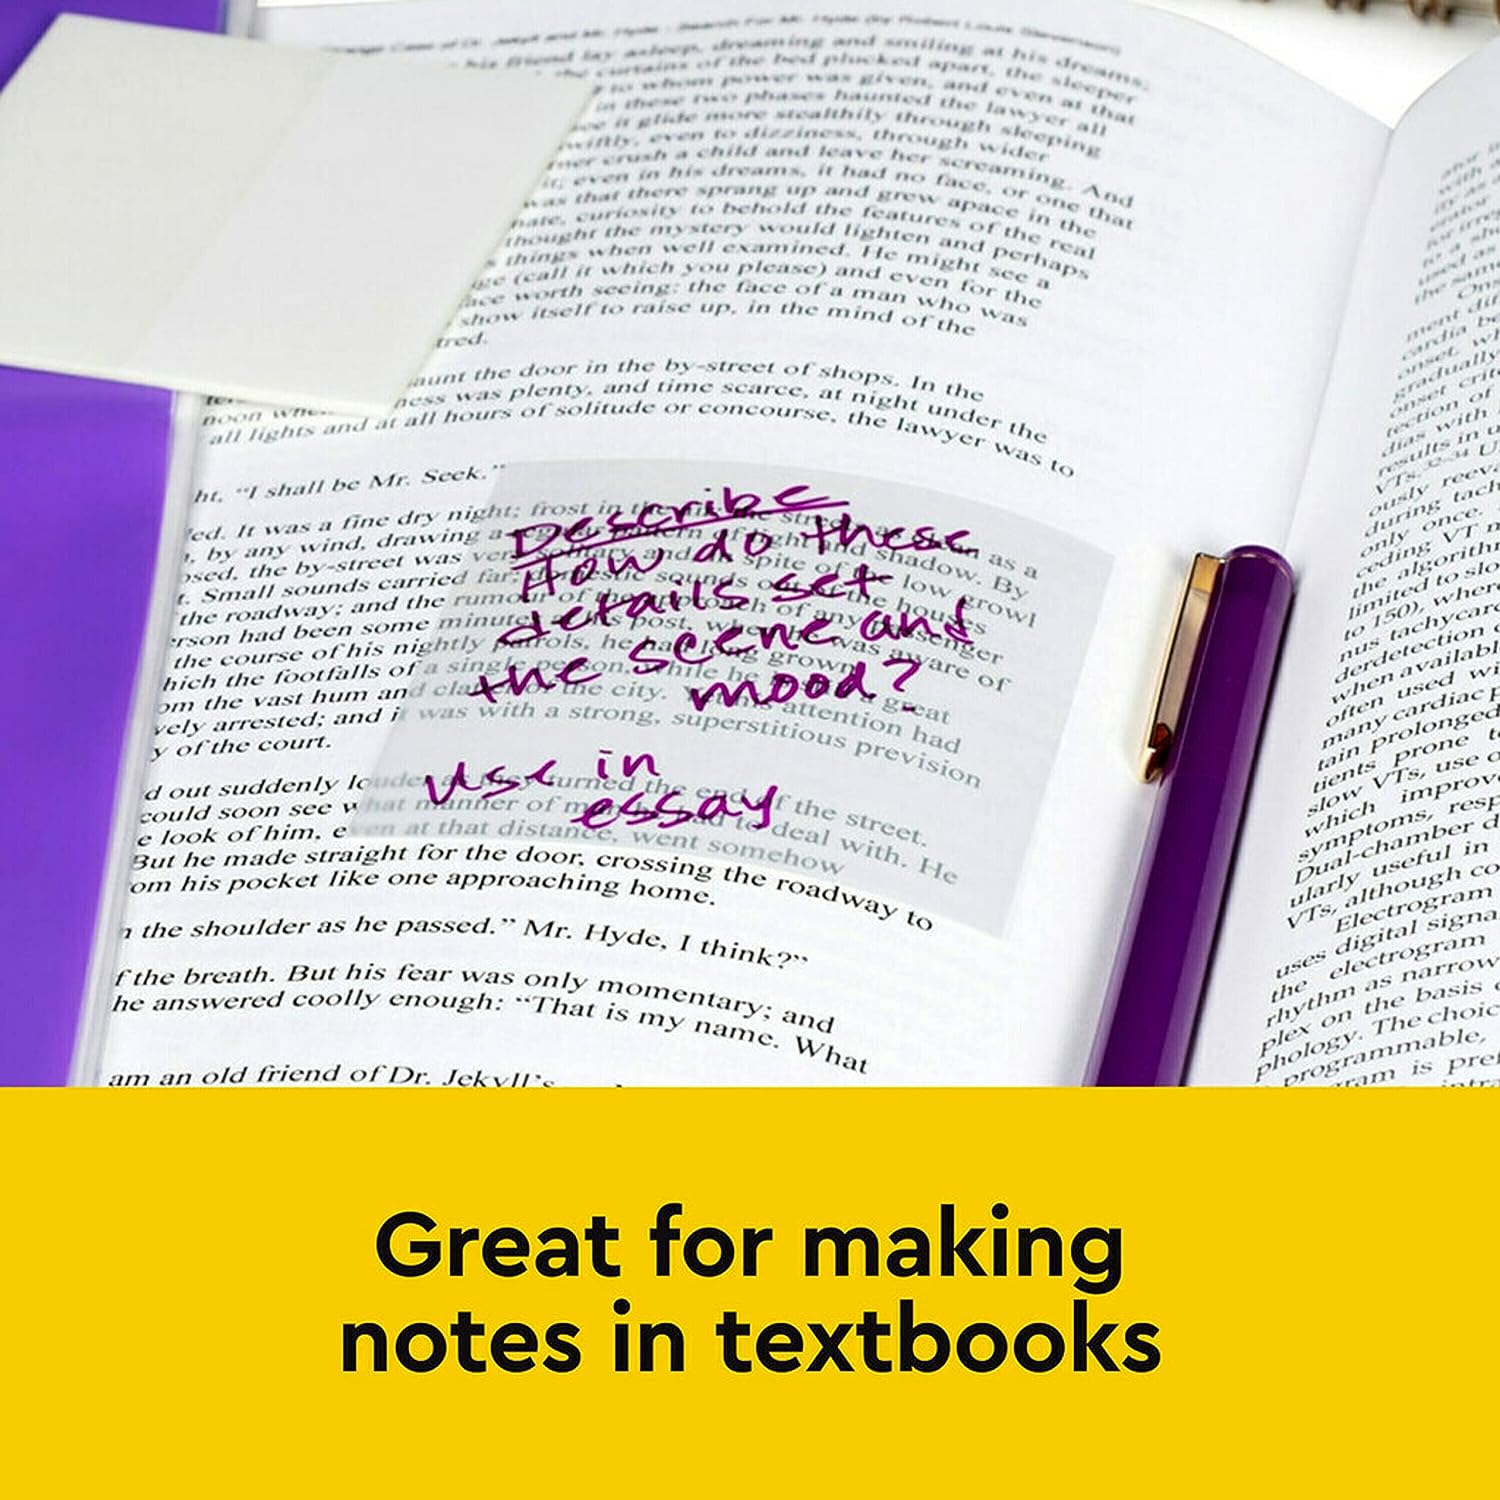 Strange Case of Dr. Jekyll and Mr. Hyde - Search For Mr. Hyde (by Robert Louis Stevenson)
his friend lay asleep, dreaming and smiling at his dreams;
the curtains of the bed plucked apart, the sleeper
to whom power was given, and even at that
in these two phases haunted the lawyer all
see it glide more stealthily through sleeping
swiftly, even to dizziness, through wider
crush a child and leave her screaming. And
it; even in his dreams, it had no face, or one that
was that there sprang up and grew apace in the
curiosity to behold the features of the real
thought the mystery would lighten and perhaps
things when well examined. He might see a
(call it which you please) and even for the
face worth seeing: the face of a man who was
show itself to raise up, in the mind of the
the door in the by-street of shops. In the
noon when ness was plenty, and time scarce, at night under the
all lights and at all hours of solitude or concourse, the lawyer was to
ht, “I shall be Mr. Seek.”
ed. It was a fine dry night; frost in the air; the streets as clean as a
, by any wind, drawing a regular pattern of light and shadow. By
osed, the by-street was very solitary and in spite of the low growl
t. Small sounds carried far; domestic sounds out of the houses
the roadway; and the rumour of the approach of any passenger
rson had been some minutes at his post, when he was aware of
the course of his nightly patrols, he had long grown
hich the footfalls of a single person, while he is still a great
om the vast hum and clatter of the city. Yet his attention had
vely arrested; and it was with a strong, superstitious prevision
y of the court.
d out suddenly louder as they turned the end of the street.
could soon see what manner of man he had to deal with. He
e look of him, even at that distance, went somehow
But he made straight for the door, crossing the roadway to
om his pocket like one approaching home.
n the shoulder as he passed.” Mr. Hyde, I think?”
f the breath. But his fear was only momentary; and
he answered coolly enough: “That is my name. What
am an old friend of Dr. Jekyll’s
Describe
How do these
details set
the scene and
mood?
Use in
essay
ment
cardia
onset,
gradually
onset
tection of
dias with
results in
VTs.32-34
ously
during
only once.
ceding VT
the algorithm
limited to
to 150), where
nus
derdetection
when available
often used
many cardiac
tain prolonged
tients prone
slow VTs, use
which
symptoms,
Dual-chamber
ularly useful in
VTs, although
Electrogram
uses digital
the electrogram
rhythm as narrow
plex on the basis
phology. The
programmable,
Great for making
notes in textbooks